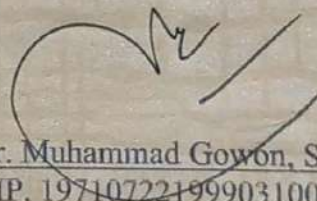 r. Muhammad Gowon, S
IP. 19710722199903100